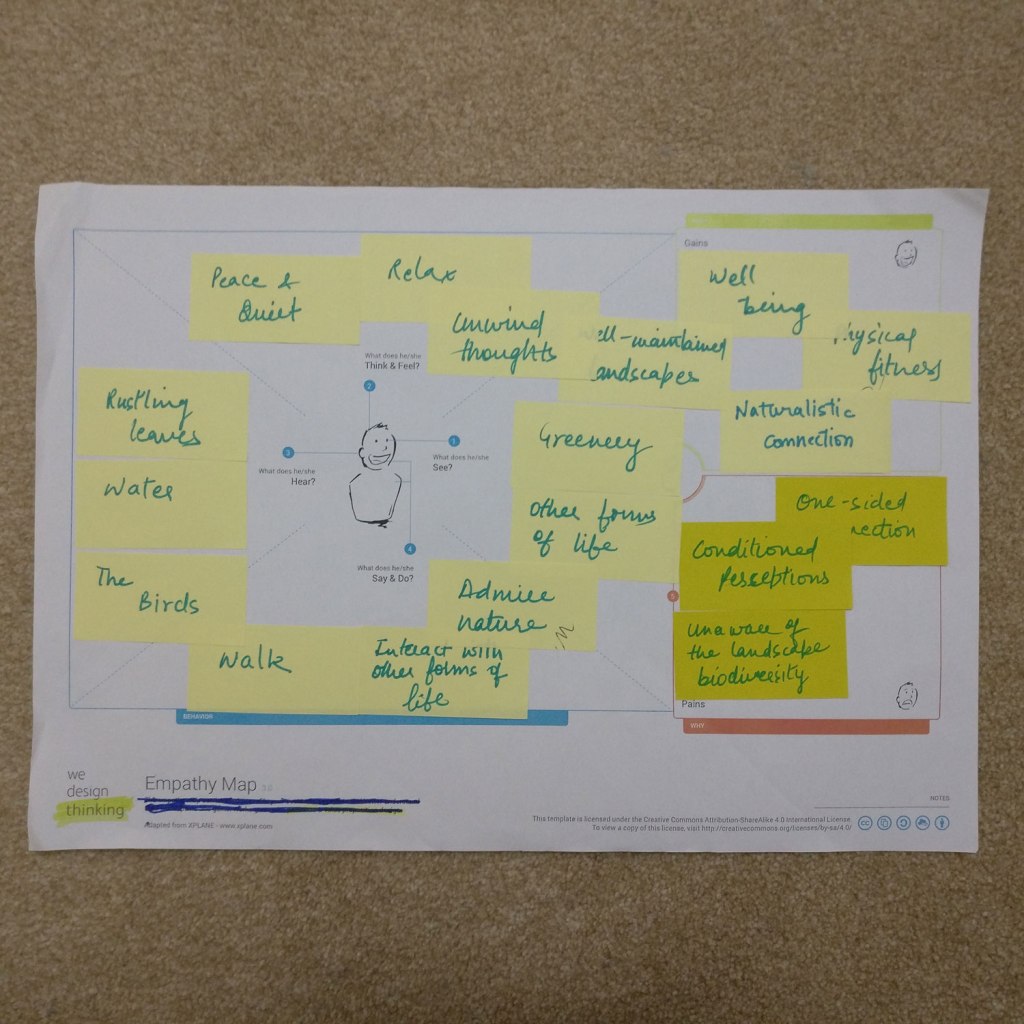 Peace &
Quiet
Relax
Unwind
thoughts
ell-maintained
andscapes
What does he/she
Think & Feel?
2
Rustling
leaves
Water
The
Birds
3
What does he/she
Hear?
1
What does he/she
See?
Greenery
Other forms
of life
4
What does he/she
Say & Do?
Admire
nature
Walk
Interact with
other forms of
life
BEHAVIOR
Gains
Well
being
hysical
fitness
Naturalistic
connection
One-sided
nection
Conditioned
Perseptions
5
Unaware of
the landscape
biodiversity
Pains
WHY
we
design
thinking
Empathy Map 3.0
Adapted from XPLANE - www.xplane.com
NOTES
This template is licensed under the Creative Commons Attribution-ShareAlike 4.0 International License.
To view a copy of this license, visit http://creativecommons.org/licenses/by-sa/4.0/